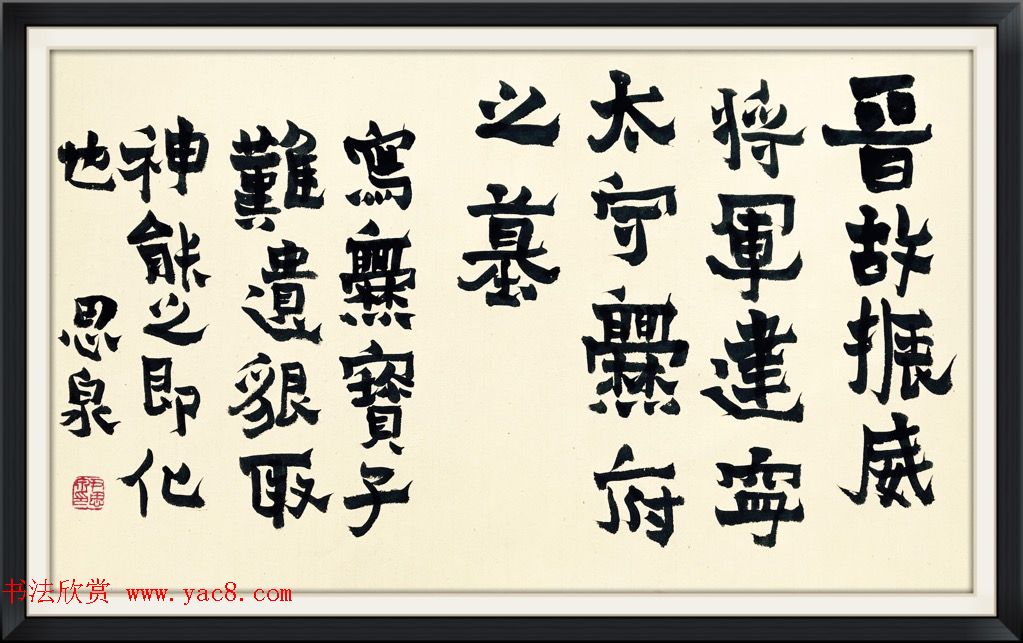 晉故振威
將軍建寧
太守爨府
之墓
寫爨寶子
難遺貌取
神能之即化
也 思泉
书法欣赏 www.yac8.com